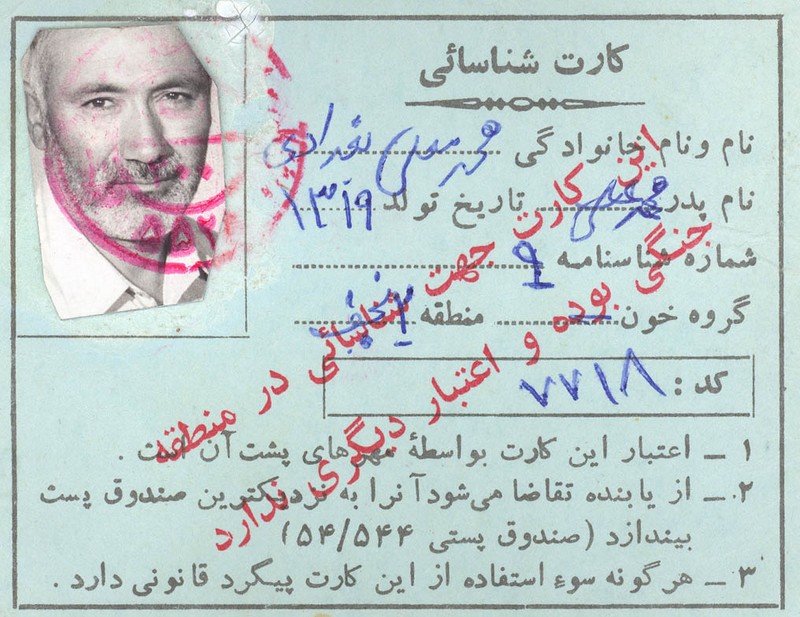 کارت شناسائی
نام و نام خانوادگی محمد
نام پدر محمدعلی تاریخ تولد ۱۳۱۹
شماره شناسنامه ۹
گروه خون منطقه ۱
کد : ۷۷۱۸
۱ ــ اعتبار این کارت بواسطهٔ مهرهای پشت آن است .
۲ ــ از یابنده تقاضا می‌شود آنرا به نزدیکترین صندوق پست
بیندازد (صندوق پستی ۵۴/۵۴۴)
۳ ــ هرگونه سوء استفاده از این کارت پیگرد قانونی دارد .
این کارت جهت شناسائی در منطقه
جنگی بوده و اعتبار دیگری ندارد